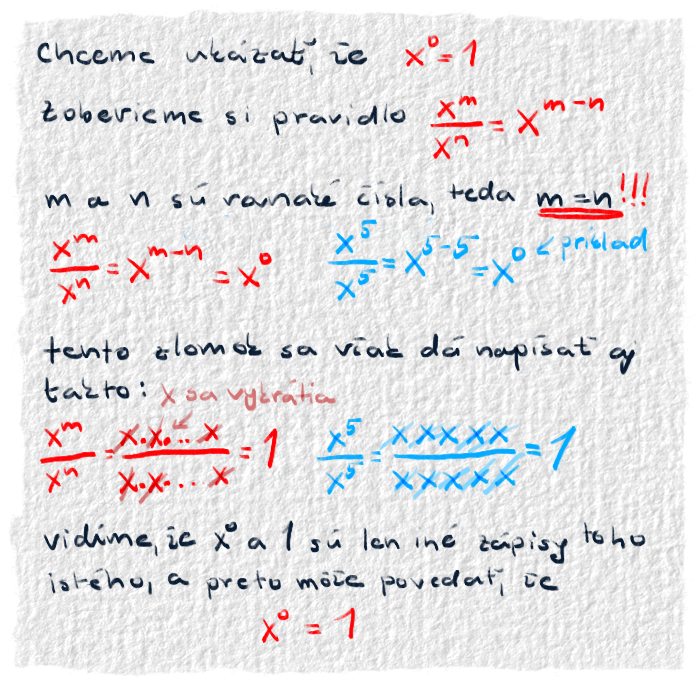 Chceme ukázať, že x⁰=1
Zoberieme si pravidlo xᵐ/xⁿ = xᵐ⁻ⁿ
m a n sú rovnaké čísla, teda m=n!!!
xᵐ/xⁿ = xᵐ⁻ⁿ = x⁰ x⁵/x⁵ = x⁵⁻⁵ = x⁰ ← príklad
tento zlomok sa však dá napísať aj
takto: x sa vykrátia
xᵐ/xⁿ = x.x...x/x.x...x = 1 x⁵/x⁵ = xxxxx/xxxxx = 1
vidíme, že x⁰ a 1 sú len iné zápisy toho
istého, a preto môže povedať, že
x⁰ = 1